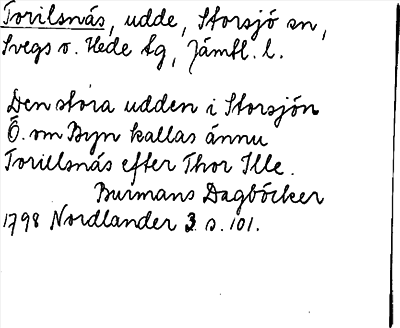 Torilsnäs, udde, Storsjö sn,
Svegs o. Hede tg, Jämtl. l.
Den stora udden i Storsjön
Ö. om Byn kallas ännu
Torillsnäs efter Thor Ille.
Burmans Dagböcker
1798 Nordlander 3 s. 101.